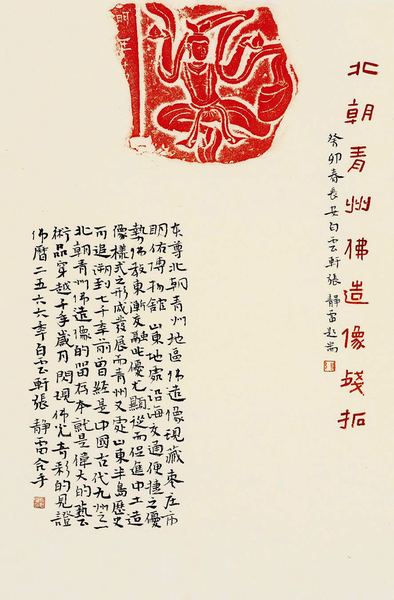 北朝青州佛造像殘拓
癸卯春長安白雲軒張靜雷題耑
本尊北朝青州地區佛造像現藏棗庄市
明佑博物館山東地處沿海交通便捷之優
勢佛教東漸交融此優尤顯從而促進中土造
像樣式之形成發展而青州又處山東半島歷史
可追溯到七千年前曾經是中國古代九州之一
北朝青州佛造像的留存本就是偉大的藝
術品穿越千年歲月閃現佛光奇彩的見證
佛曆二五六六年白雲軒張靜雷合手